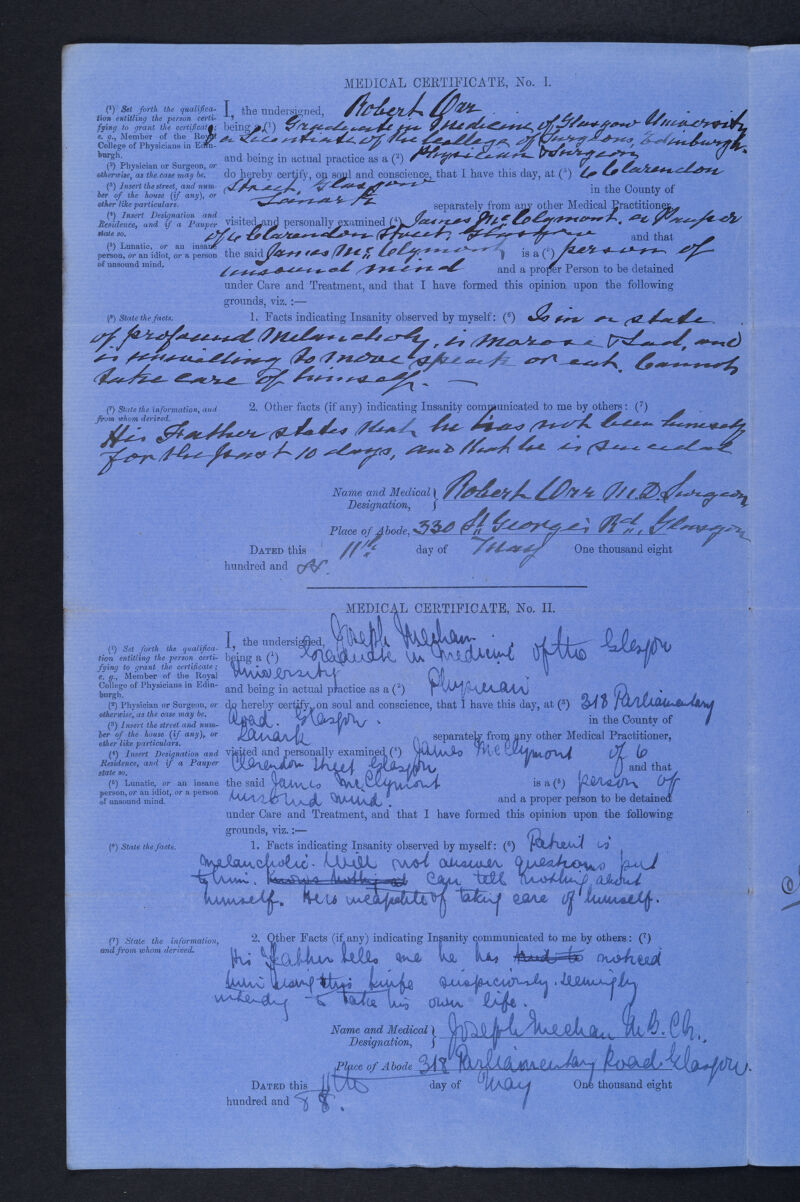 MEDICAL CERTIFICATE, No. I.
(¹) Set forth the qualifica-
tion entitling the person certi-
fying to grant the certificate;
e. g., Member of the Royal
College of Physicians in Edin-
burgh.
(²) Physician or Surgeon, or
otherwise, as the case may be.
(³) Insert the street, and num-
ber of the house (if any), or
other like particulars.
(⁴) Insert Designation and
Residence, and if a Pauper
state so.
(⁵) Lunatic, or an insane
person, or an idiot, or a person
of unsound mind.
I, the undersigned, Robert Orr
being a (¹) Graduate in Medicine of Glasgow University
& Licentiate of the College of Surgeons, Edinburgh.
and being in actual practice as a (²) Physician & Surgeon
do hereby certify, on soul and conscience, that I have this day, at (³) 6 Clarendon
Street, Glasgow in the County of
Lanark separately from any other Medical Practitioner,
visited and personally examined (⁴) James McClymont. a Pauper
of 6 Clarendon Street Glasgow and that
the said James McClymont is a (⁵) person of
unsound mind and a proper Person to be detained
under Care and Treatment, and that I have formed this opinion upon the following
grounds, viz. :—
(⁶) State the facts.
1. Facts indicating Insanity observed by myself: (⁶) Is in a state
of profound Melancholy, is morose & sad, and
is unwilling to move speak or eat. Cannot
take care of himself. —
(⁷) State the information, and
from whom derived.
2. Other facts (if any) indicating Insanity communicated to me by others: (⁷)
His Father states that he has not been himself
for the past 10 days, and that he is suicidal
Name and Medical } Robert Orr M.D. Surgeon
Designation,
Place of Abode, 330 St. George's Rd., Glasgow
DATED this 11th day of May One thousand eight
hundred and 88.
MEDICAL CERTIFICATE, No. II.
(¹) Set forth the qualifica-
tion entitling the person certi-
fying to grant the certificate;
e. g., Member of the Royal
College of Physicians in Edin-
burgh.
(²) Physician or Surgeon, or
otherwise, as the case may be.
(³) Insert the street and num-
ber of the house (if any), or
other like particulars.
(⁴) Insert Designation and
Residence, and if a Pauper
state so.
(⁵) Lunatic, or an insane
person, or an idiot, or a person
of unsound mind.
I, the undersigned, Joseph Meehan
being a (¹) Graduate in Medicine of the Glasgow
University
and being in actual practice as a (²) Physician
do hereby certify, on soul and conscience, that I have this day, at (³) 318 Parliamentary
Road. Glasgow. in the County of
Lanark separately from any other Medical Practitioner,
visited and personally examined (⁴) James McClymont of 6
Clarendon Street Glasgow and that
the said James McClymont is a (⁵) person of
unsound mind. and a proper person to be detained
under Care and Treatment, and that I have formed this opinion upon the following
grounds, viz. :—
(⁶) State the facts.
1. Facts indicating Insanity observed by myself: (⁶) Patient is
melancholic. Will not answer questions put
to him. Knows nothing at Can tell nothing about
himself. He is incapable of taking care of himself.
(⁷) State the information,
and from whom derived.
2. Other Facts (if any) indicating Insanity communicated to me by others: (⁷)
His Father tells me he has had to noticed
him using his knife suspiciously. seemingly
intending to take his own life.
Name and Medical } Joseph Meehan M.B. Ch.
Designation,
Place of Abode 318 Parliamentary Road Glasgow.
DATED this 11th day of May One thousand eight
hundred and 88.